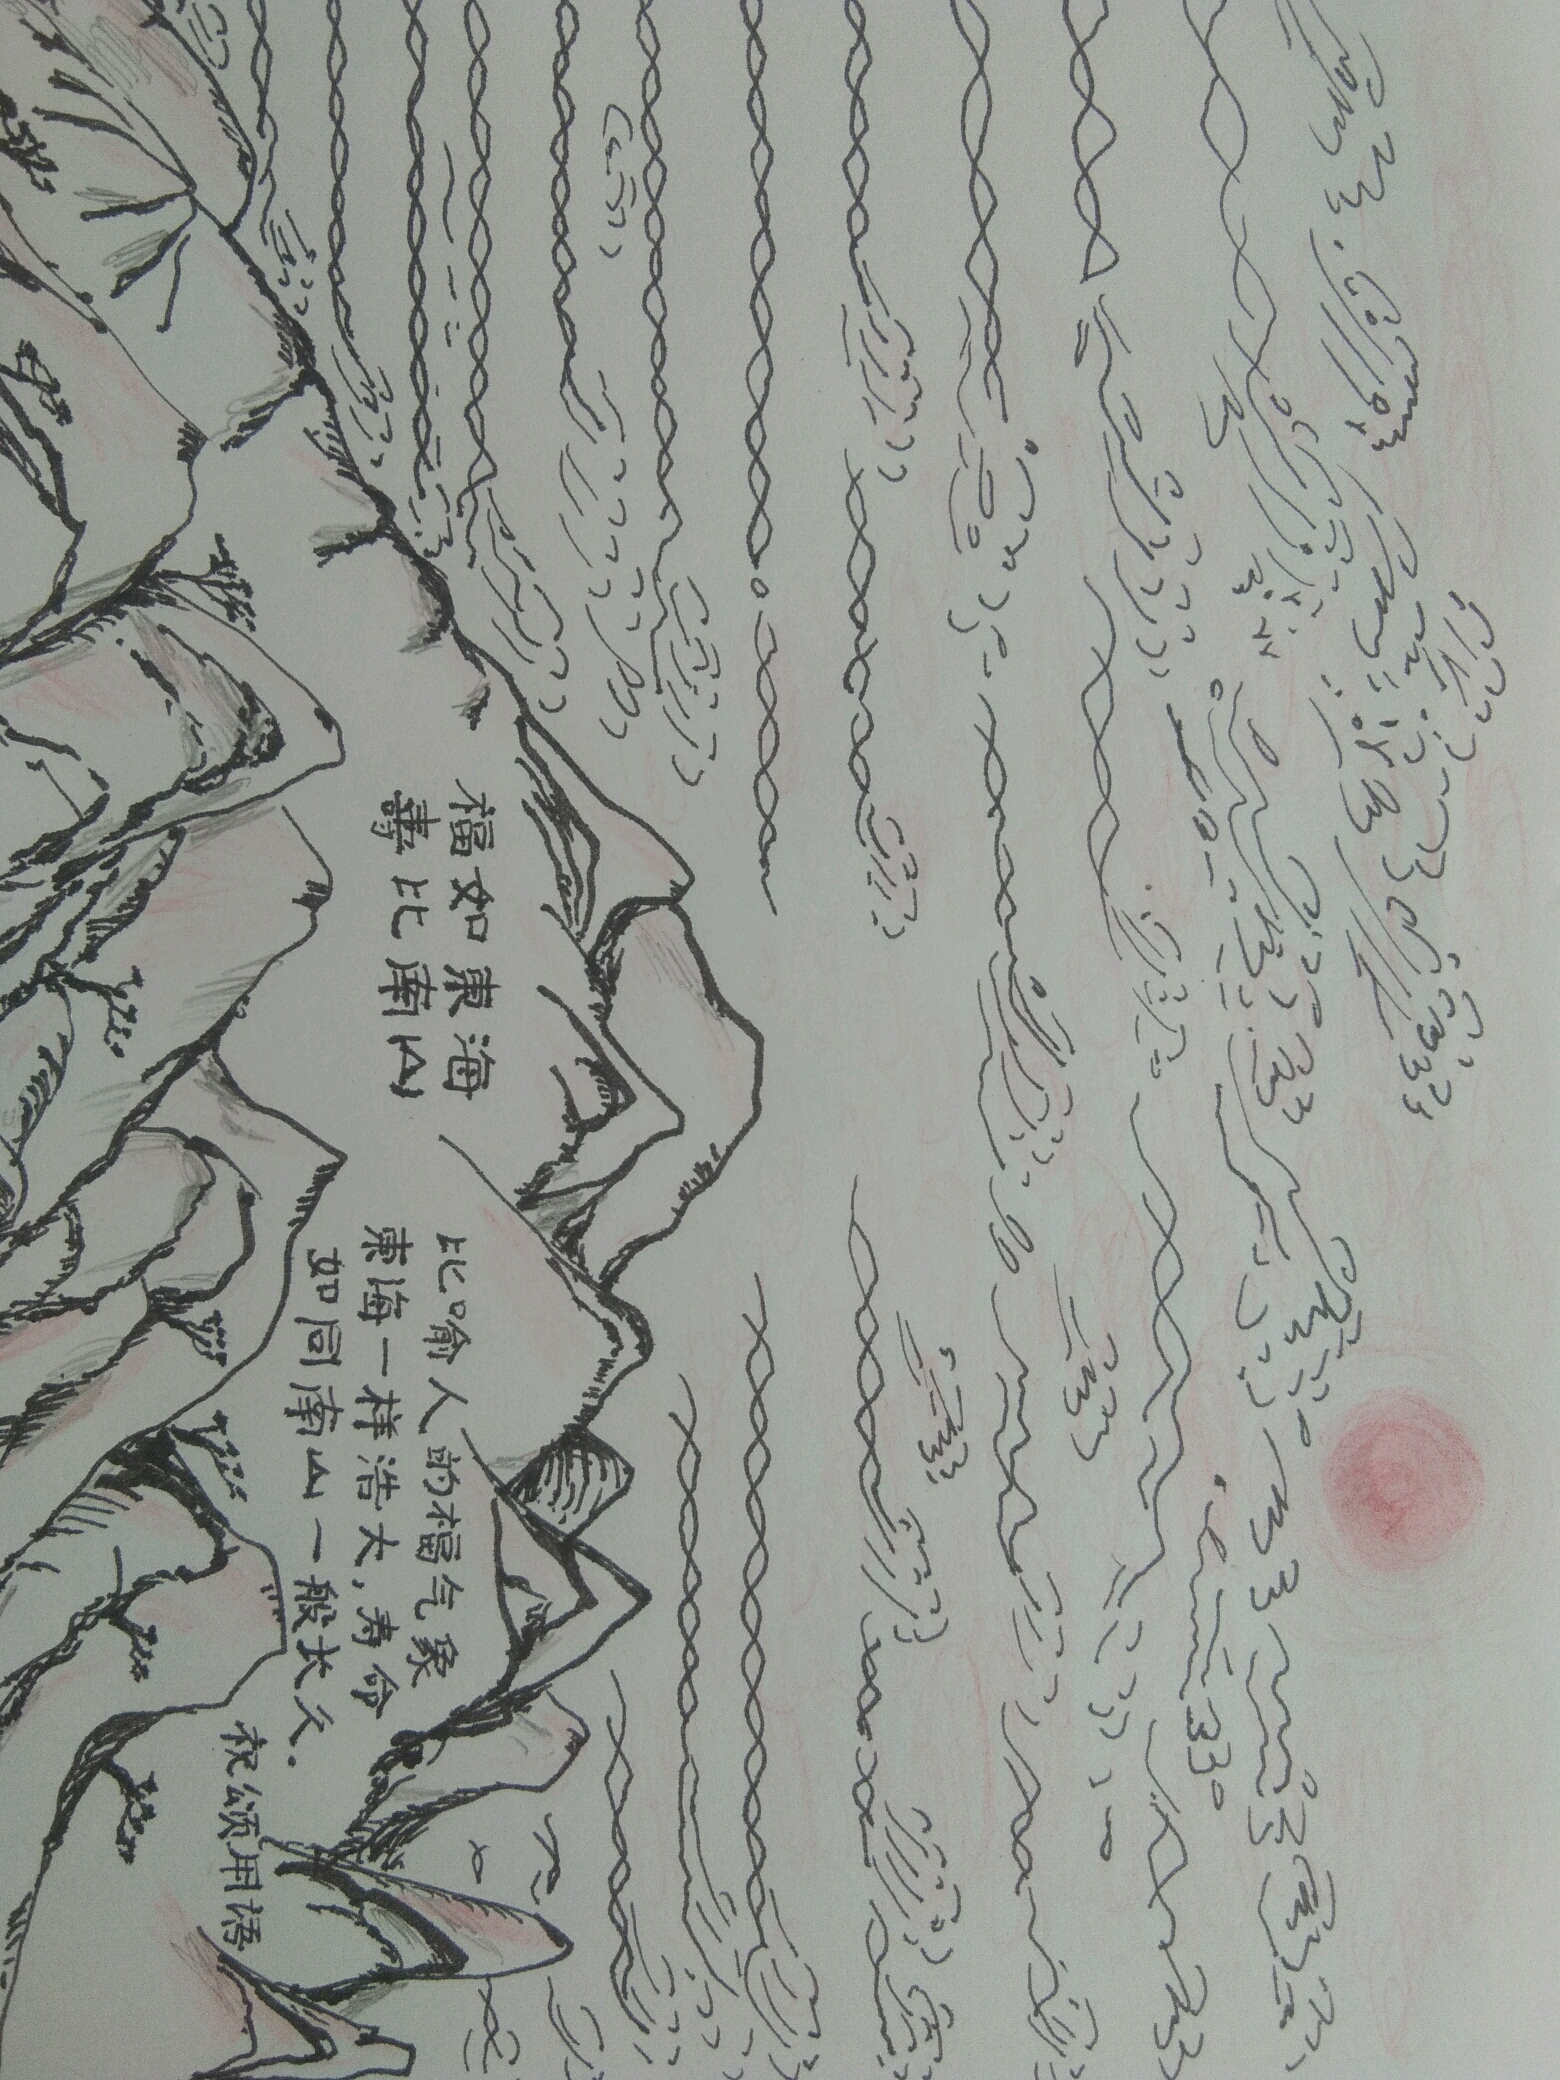 福如東海
壽比南山
比喻人的福气象
東海一样浩大,寿命
如同南山一般长久.
祝颂用语